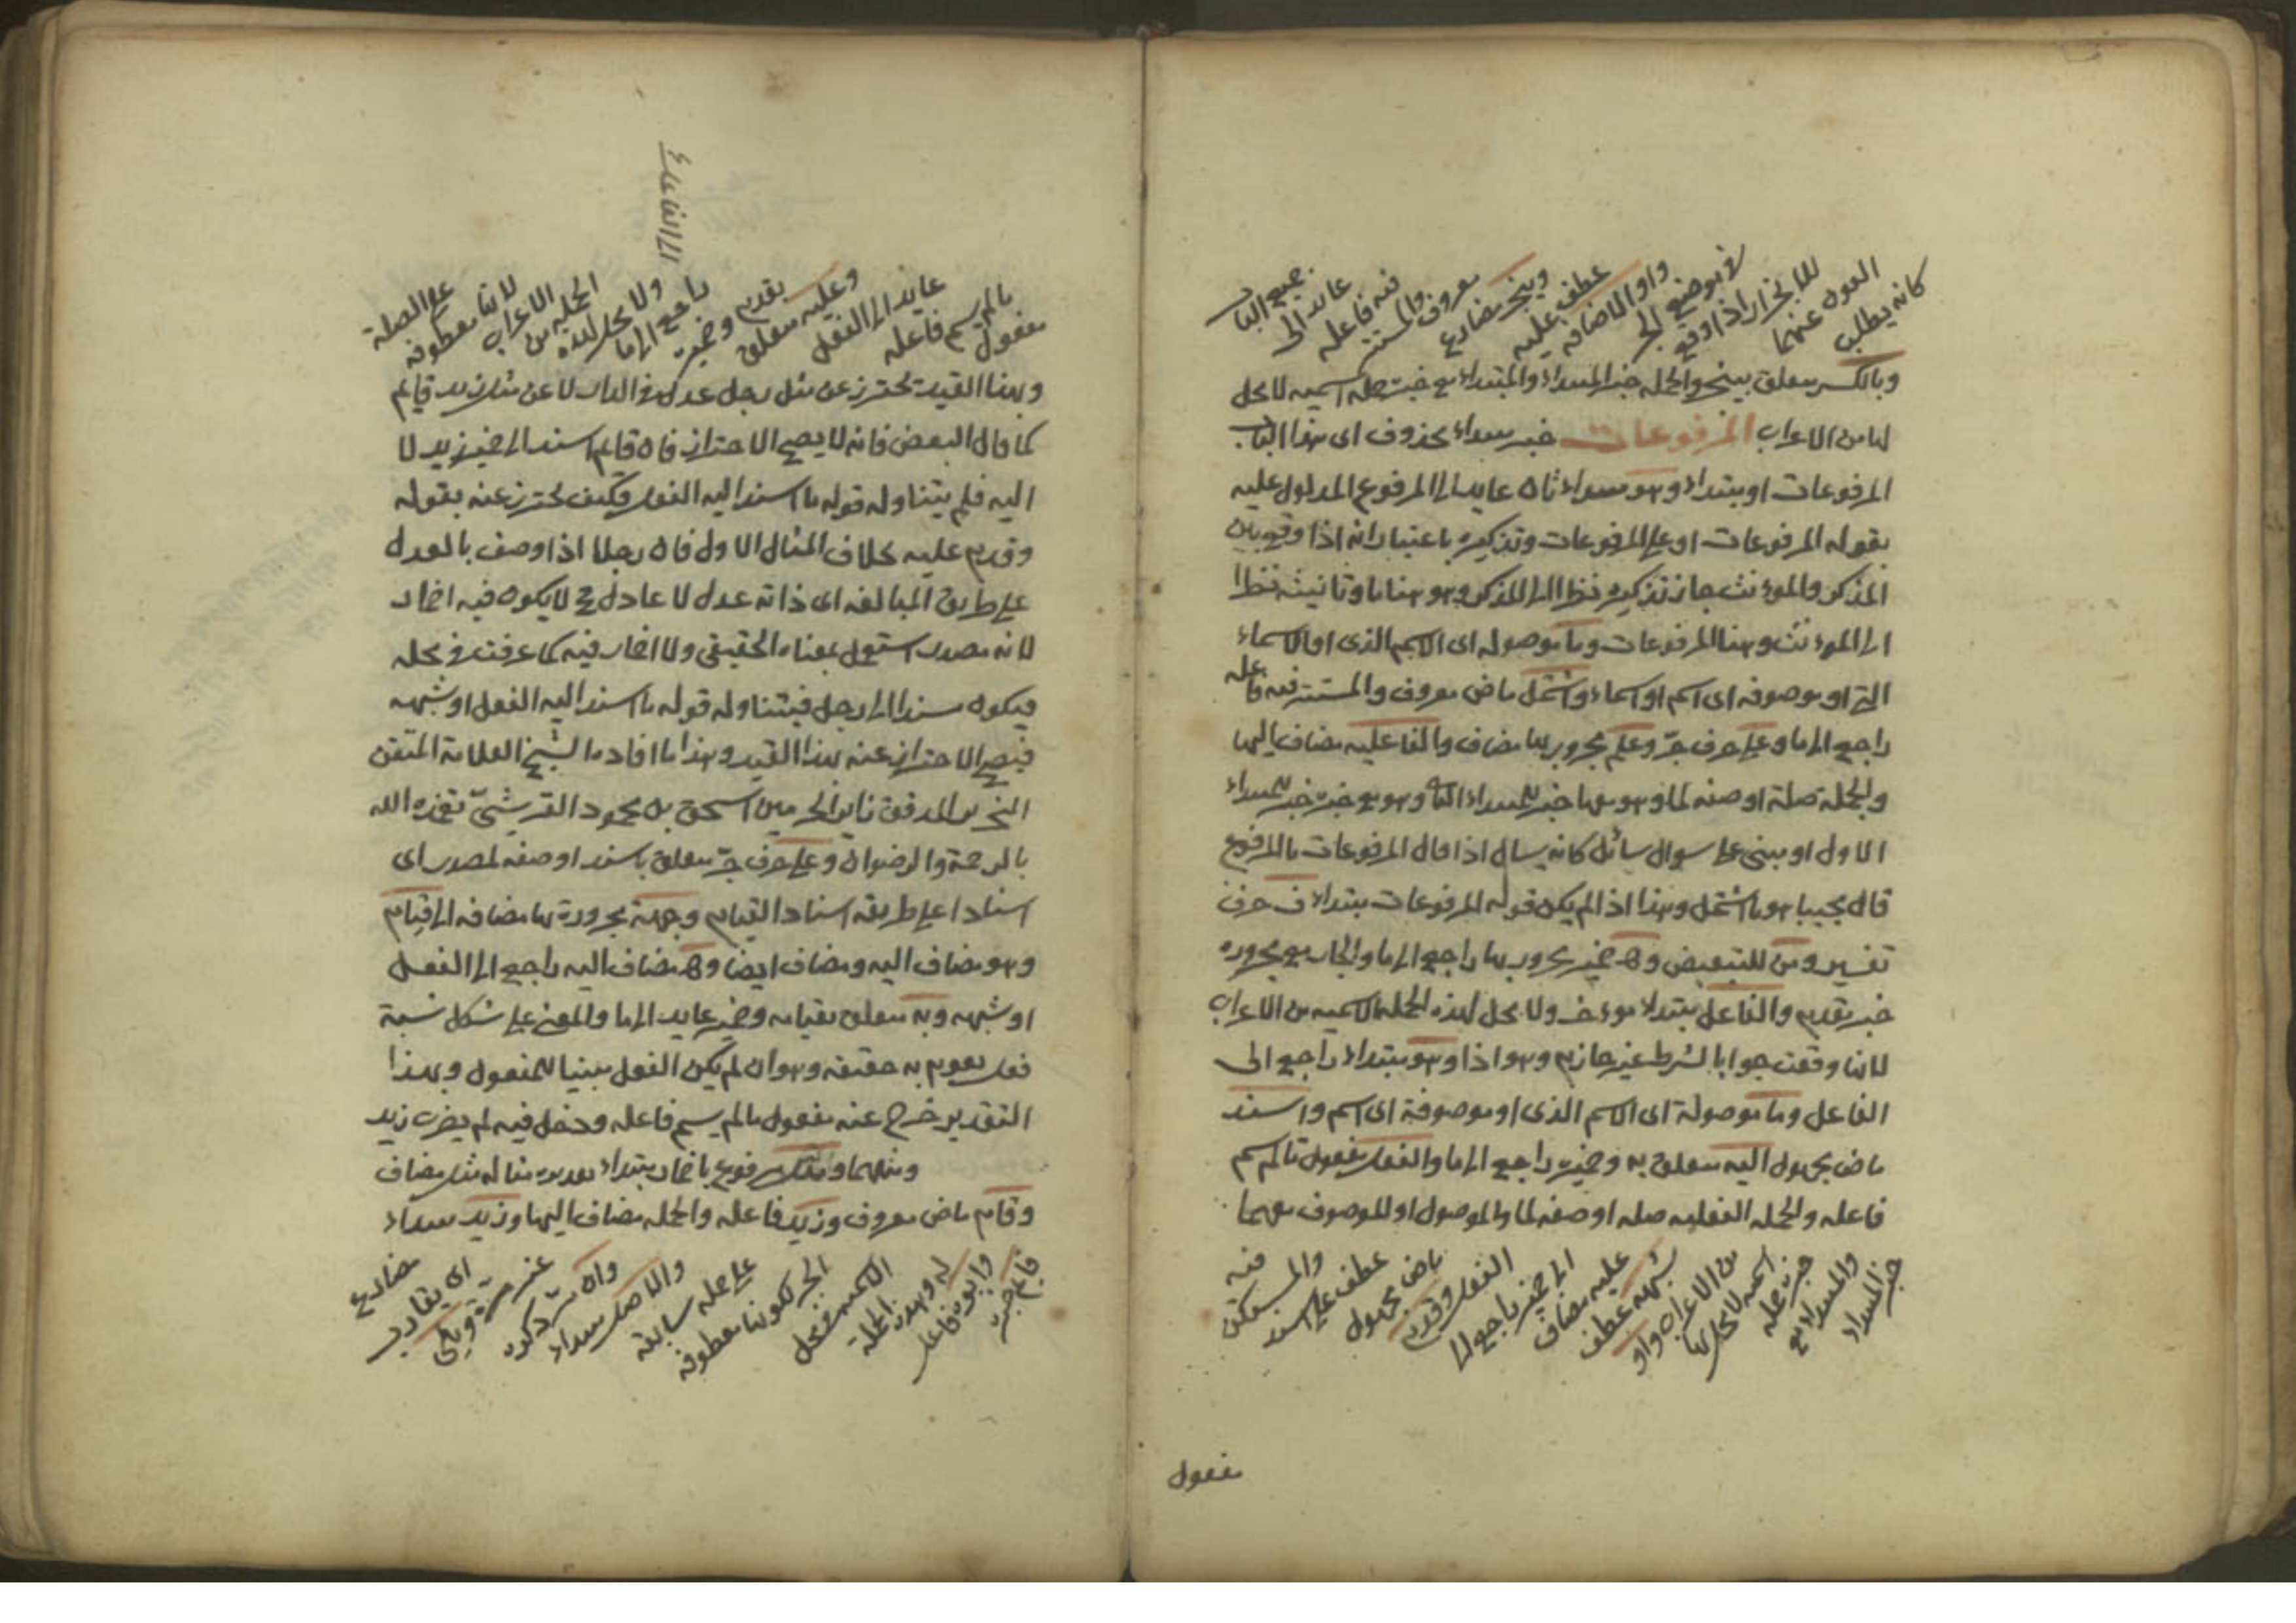 كانه يطلب
العون عنهما
للانجرار اذا وقع
في موضع الجر
واو الاضافه
عطف عليه
وينجر مضارع
معروف والمستتر
فيه فاعله
عايد الى
جميع الباب
وبالكسر متعلق بينجر والجمله خبر المبتداء والمبتداء مع خبره جمله اسميه لا محل
لها من الاعراب المرفوعات خبر مبتداء محذوف اى هذا الباب
المرفوعات او مبتداء وهو مبتداء ثان عايد الى المرفوع المدلول عليه
بقوله المرفوعات او على المرفوعات وتذكيره باعتبار انه اذا وقع بين
المذكر والمؤنث جاز تذكيره نظرا الى المذكر وهو هنا ما وتانيثه نظرا
الى المؤنث وهنا المرفوعات وما موصوله اى الاسم الذى او الاسماء
التى او موصوفه اى اسم او اسماء واشتمل ماض معروف والمستتر فيه فاعله
راجع الى ما وعلى حرف جر وعلم مجرور بها مضاف والفاعليه مضاف اليها
والجملة صلة او صفه لما وهو معها خبر للمبتداء الثانى وهو مع خبره خبر للمبتداء
الاول او مبنى على سوال سائل كانه يسال اذا قال المرفوعات ما المرفوع
قال مجيبا هو ما اشتمل وهذا اذا لم يكن قوله المرفوعات مبتداء ف حرف
تفسير ومن للتبعيض وه ضمير مجرور بها راجع الى ما والجار مع مجروره
خبر مقدم والفاعل مبتداء موخر ولا محل لهذه الجمله الاسميه من الاعراب
لانها وقعت جوابا لشرط غير جازم وهو اذا وهو مبتداء راجع الى
الفاعل وما موصولة اى الاسم الذى او موصوفة اى اسم واسند
ماض مجهول اليه متعلق به وضميره راجع الى ما والفعل مفعول ما لم يسم
فاعله والجمله الفعليه صله او صفه لما والموصول او الموصوف معهما
خبر المبتداء
والمبتداء مع
خبره جمله
اسميه لا محل لها
من الاعراب واو
شبهه عطف
عليه مضاف
الى ضمير راجع الى
الفعل وقدم
ماض مجهول
عطف على اسند
والمستكن
فيه
مفعول
مفعول
ما لم يسم فاعله
عايد الى الفعل
وعليه متعلق
بقدم وضميره
راجع الى ما
ولا محل لهذه
الجمله من
الاعراب
لانها معطوفه
على الصلة
الى الفاعل
وبهذا القيد تحترز عن مثل رجل عدل فى الدار لا عن مثل زيد قايم
كما قال البعض فانه لا يصح الاحتراز فان قايم اسند الى ضمير زيد لا
اليه فلم يتناوله قوله ما اسند اليه الفعل فكيف تحترز عنه بقوله
وقدم عليه بخلاف المثال الاول فان رجلا اذا وصف بالعدل
على طريق المبالغه اى ذاته عدل لا عادل ح لا يكون فيه اضمار
لانه مصدر استعمل بمعناه الحقيقى ولا اضمار فيه كما عرفت فى محله
فيكون مسندا الى رجل فيتناوله قوله ما اسند اليه الفعل او شبهه
فيصح الاحتراز عنه بهذا القيد وهذا ما افاده الشيخ العلامة المتقن
النحرير المدقق تاج الحرمين اسحق بن محمود القرشىّ تغمده الله
بالرحمة والرضوان وعلى حرف جر متعلق باسند او صفه لمصدر اى
اسنادا على طريقه اسناد القيام وجهة مجرورة بها مضافه الى قيام
وهو مضاف اليه ومضاف ايضا وه مضاف اليه راجع الى الفعل
او شبهه وبه متعلق بقيامه وضميره عايد الى ما والمعنى على شكل نسبة
فعل يقوم به حقيقه وهو ان لم يكن الفعل مبنيا للمفعول وبهذا
التقدير خرج عنه مفعول ما لم يسم فاعله ودخل فيه لم يضرب زيد
ومثلهما ومثل مرفوع باضمار مبتداء تقديره مثاله مثل مضاف
وقام ماض معروف وزيد فاعله والجمله مضاف اليها وزيد مبتداء
قايم خبره
وابوه فاعل
له وهذه الجملة
الاسميه فى محل
الجر لكونها معطوفه
على جمله سابقه
والاصل مبتداء
وان
عند
اى يقارب
مضارع